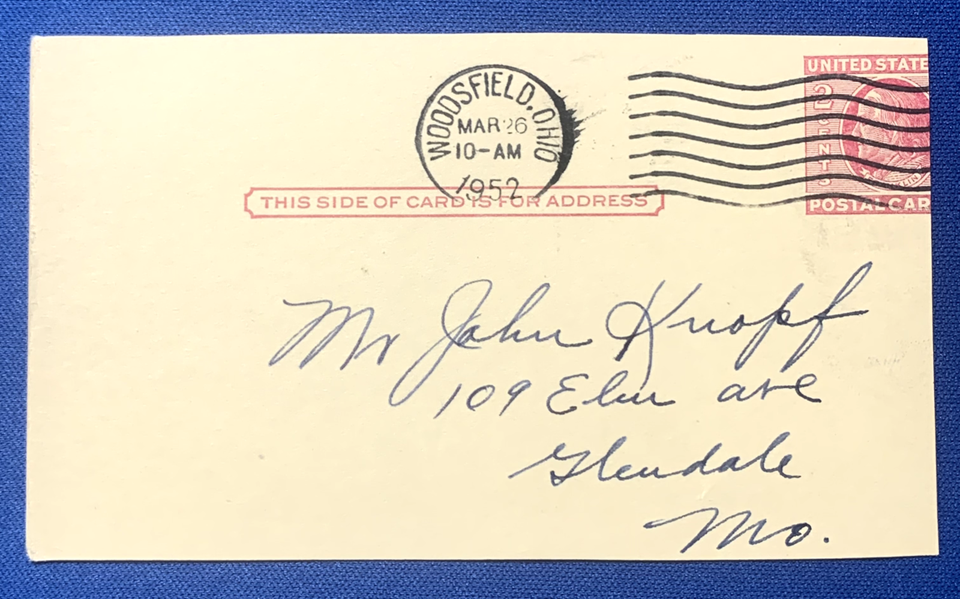 WOODSFIELD, OHIO
MAR 26
10-AM
1952
UNITED STATE
2 CENTS
LIN
POSTAL CAR
THIS SIDE OF CARD IS FOR ADDRESS
Mr John Knopf
109 Elm ave
Glendale
Mo.